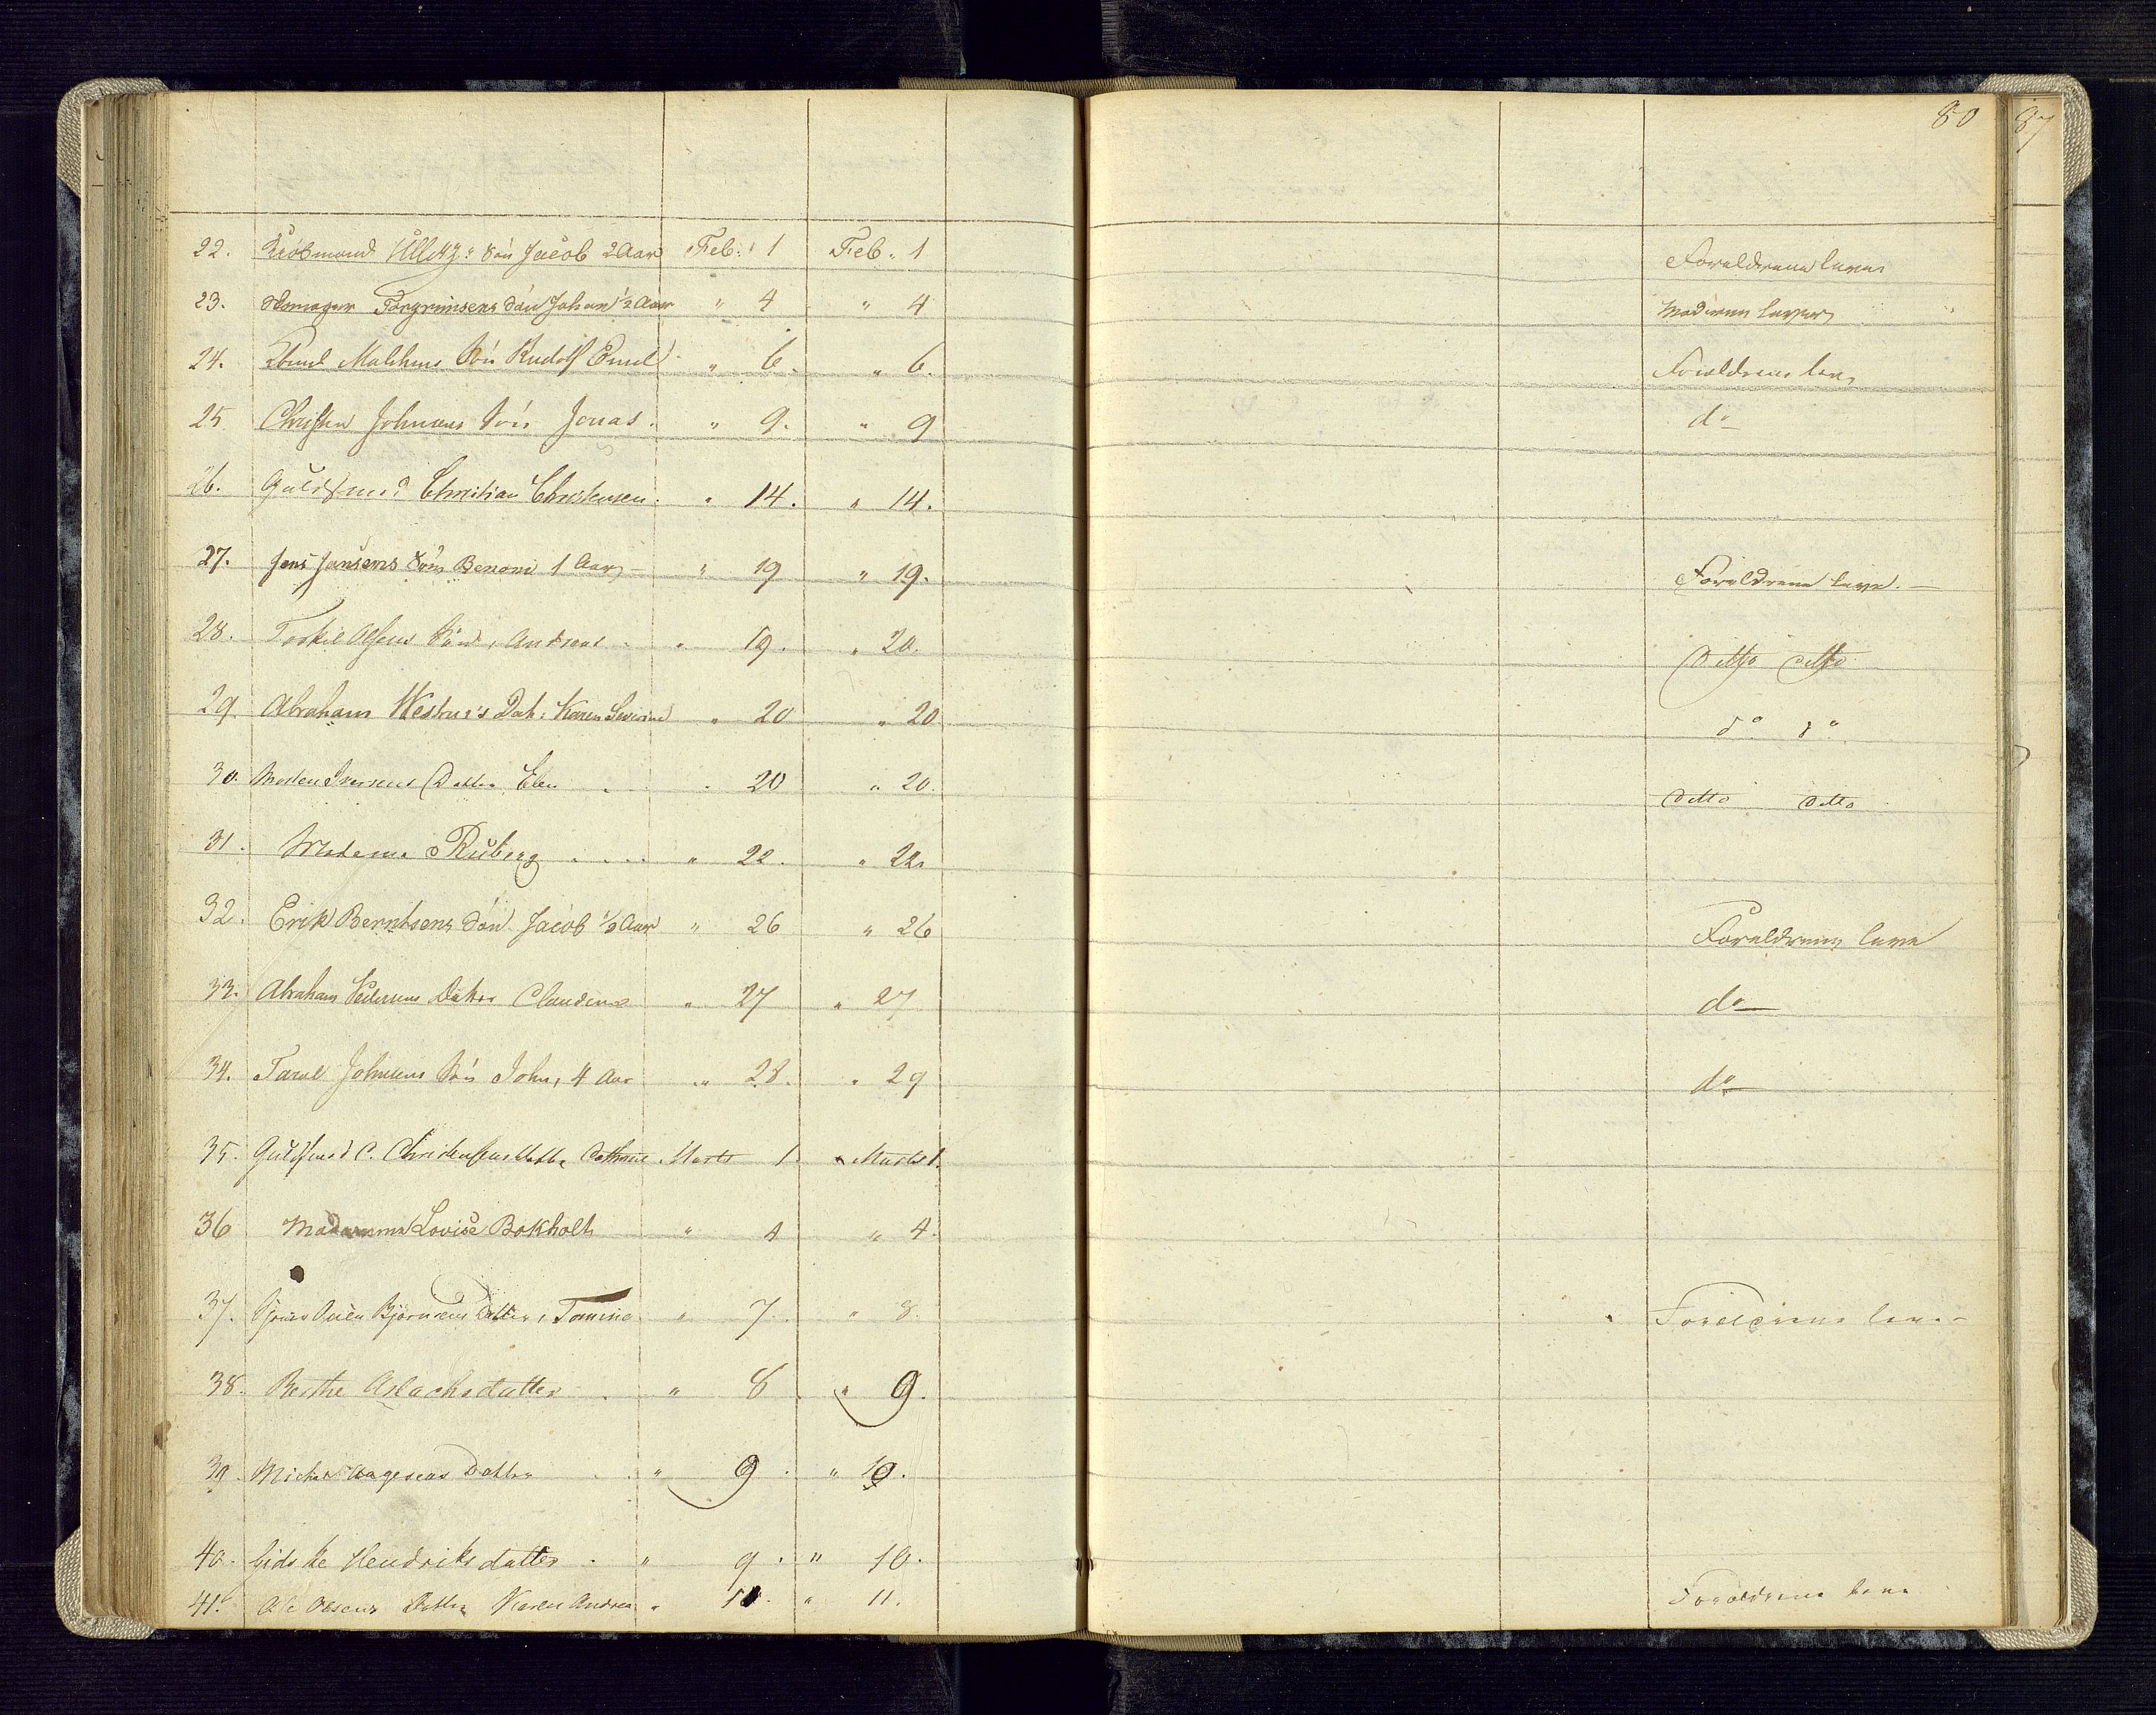 80 87
22. Kiöbmand Søn Jacob 2 Aar Feb: 1 Feb. 1 Forældrene leve
23. Torgrimsens Søn Johan 1/2 Aar " 4 " 4 Moderen lever
24. Søn Rudolf Emil " 6. " 6. Forældrene leve
25. Christen Johnsens Søn Jonas. " 9. " 9 do
26. Guldsmed Christian Christensen. " 14. " 14.
27. Jens Jensens Søn Benoni 1 Aar, " 19 " 19. Forældrene leve.
28. Torkil Olsens Søn, Andreas " 19. " 20. Ditto ditto
29. Abraham Dat: Karen Severine " 20 " 20 do do
30. Morten Iversens Datter Elen " 20 " 20. ditto ditto
31. Madame Ruberg " 22. " 22.
32. Erik Berntsens Søn Jacob 1/2 Aar " 26 " 26 Forældrene leve
33. Abraham Pedersens Datter Claudine " 27 " 27 do
34. Tarel Johnsens Søn John, 4 Aar " 28. " 29 do
35. Guldsmed C. Christensens Datter Cathrine Marts 1. " Marts 1.
36 Madamme Lovise Bokholt " 4 " 4.
37. Björnsens Datter, Tomine " 7. " 8. Forældrene leve
38. Berthe Aslachsdatter " 8 " 9.
39. Michel Aagesens Datter " 9. " 10.
40. Sidske Hendriksdatter " 9. " 10.
41. Ole Olsens Datter Karen Andrea " 10. " 11. Forældrene leve